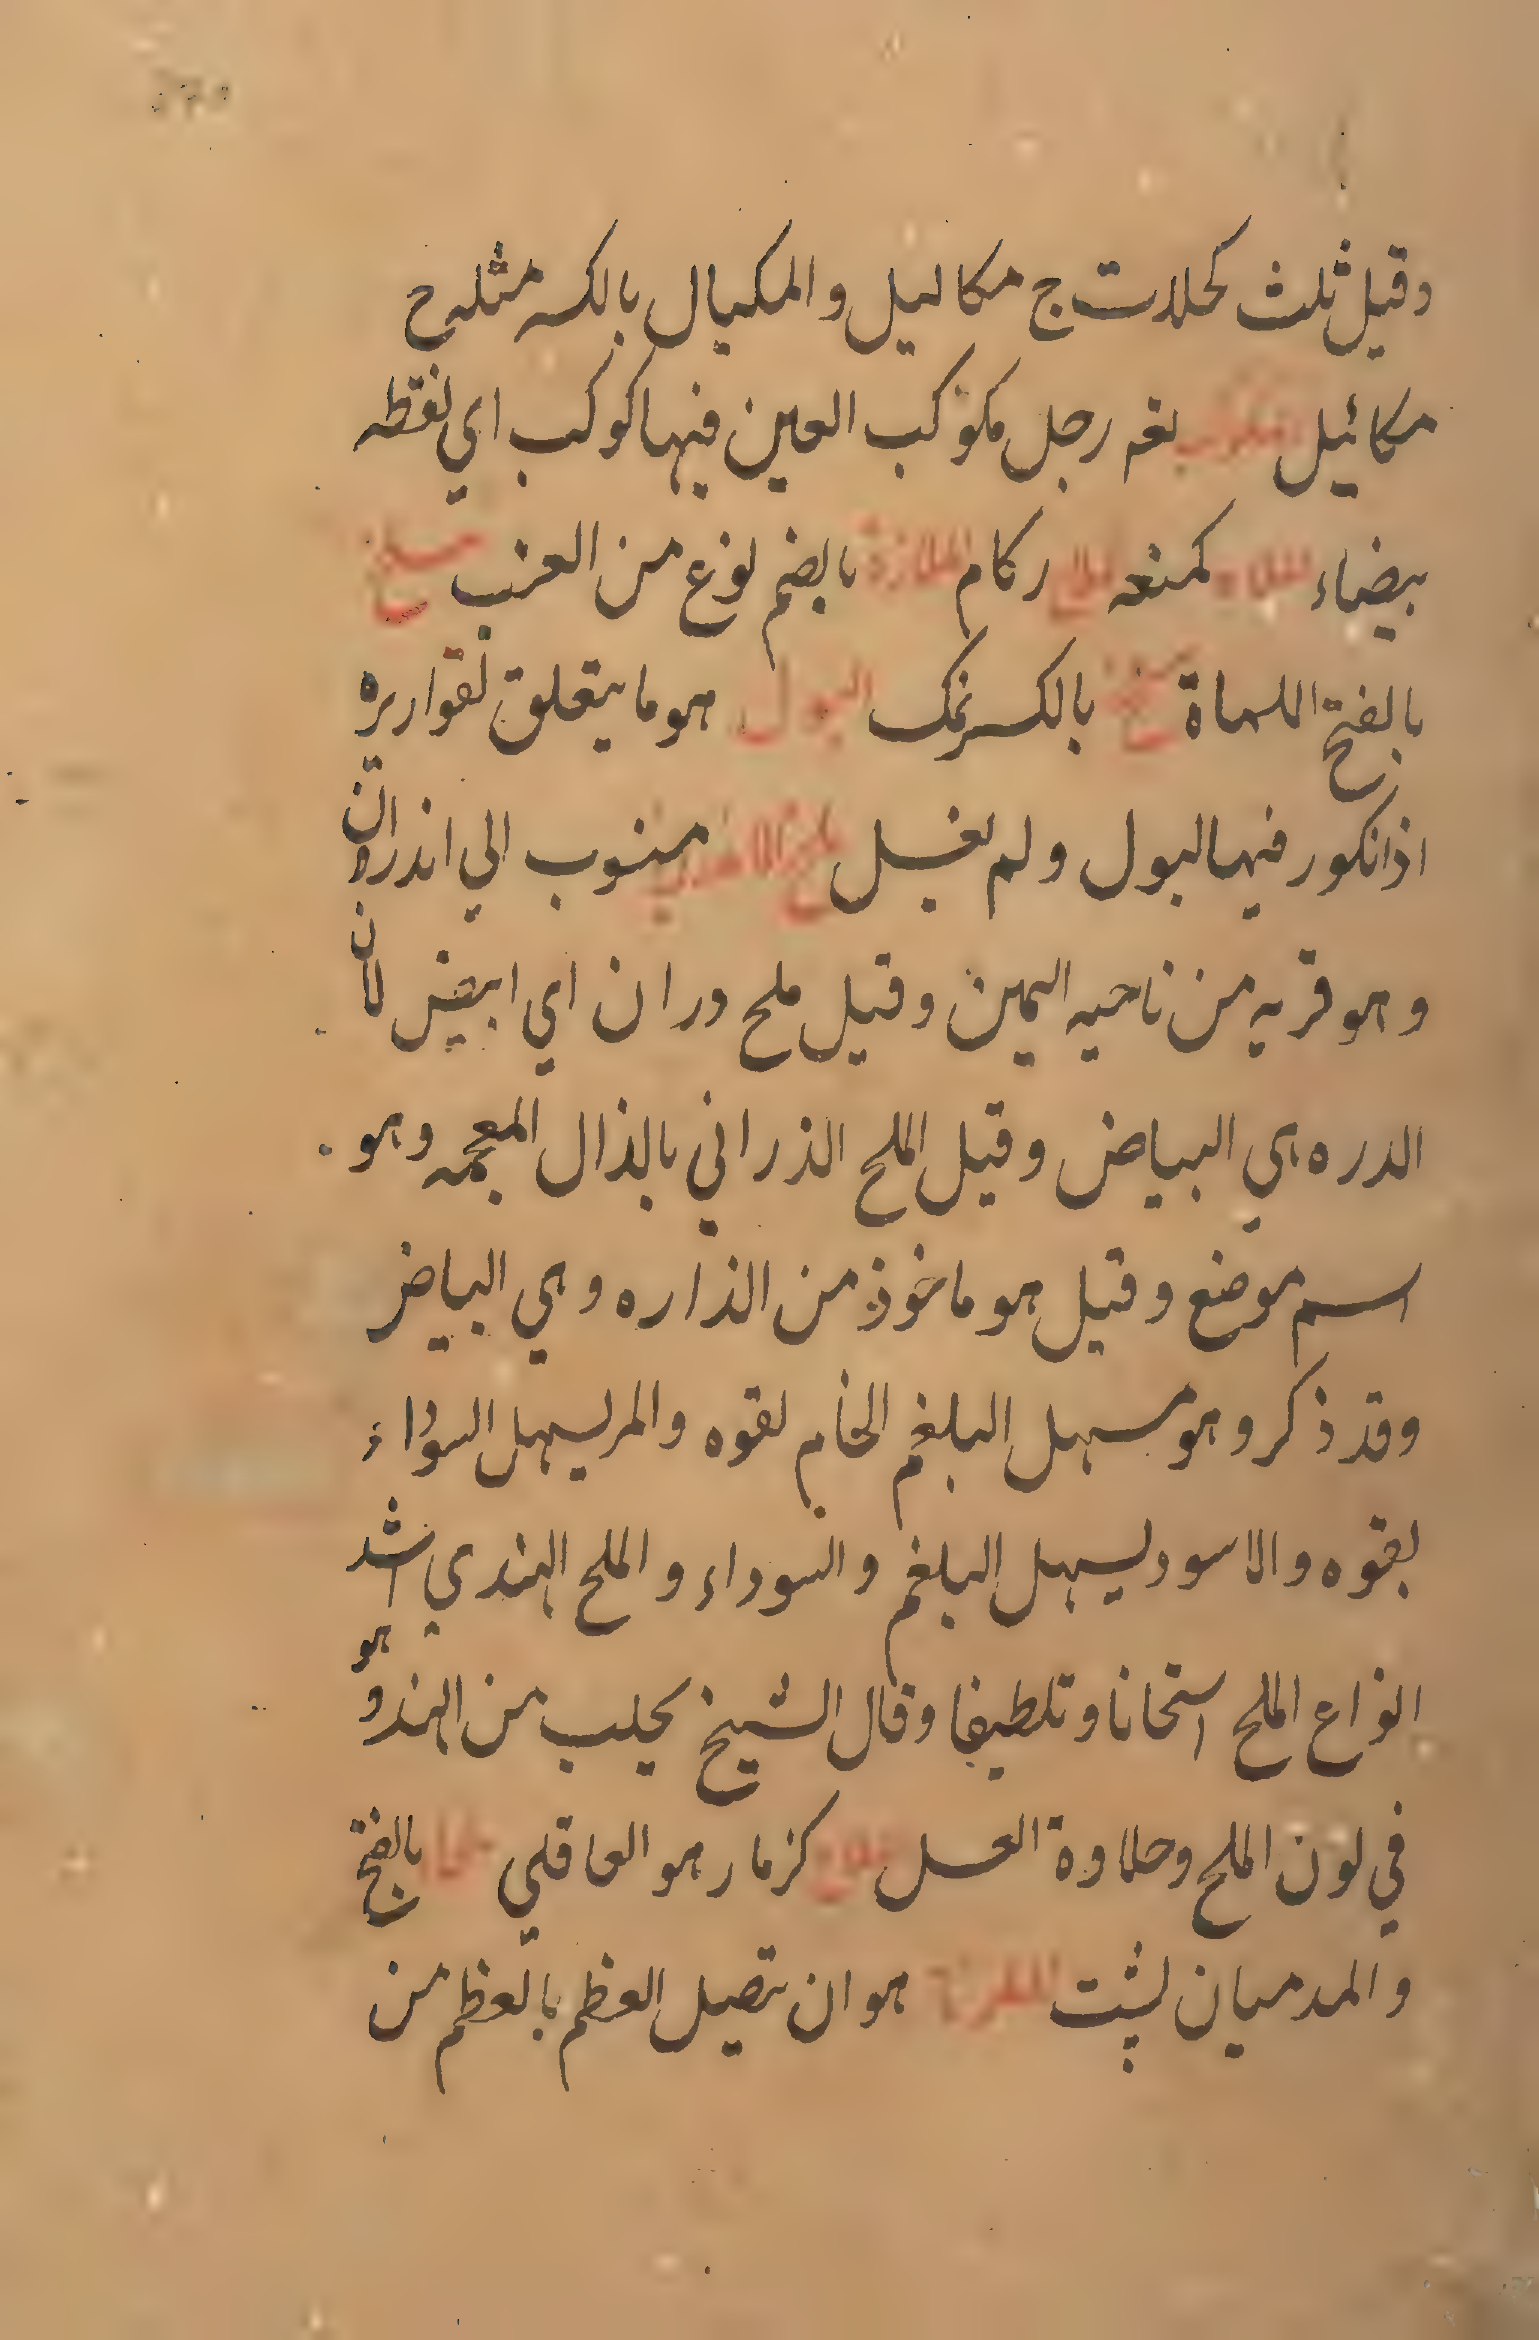 وقيل ثلث كحلات ج مكاليل والمكيال بالكسر مثله ج
مكائيل بغم رجل مكوكب العين فيها كوكب اي نقطه
بيضاء كمنعه زكام بالضم نوع من العنب ملح
بالفتح اللهاة ملح بالكسر نمك البول هو ما يتعلق بقواريره
اذا تكور فيها البول ولم يغسل ملح الاندراني منسوب الي اندران
وهو قريه من ناحيه اليمين وقيل ملح دران اي ابيض لان
الدره هي البياض وقيل الملح الذراني بالذال المعجمه وهو
اسم موضع وقيل هو ماخوذ من الذاره وهي البياض
وقد ذكر وهو مسهل البلغم الخام لقوه والمر يسهل السوداء
لقوه والاسود يسهل البلغم والسوداء والملح الهندي اشد
انواع الملح استخانا وتلطيفا وقال الشيخ يجلب من الهند وهو
في لون الملح وحلاوة العسل ملاح كزمار هو القاقلي بالفتح
والمد ميان پشت هو ان تصيل العظم بالعظم من